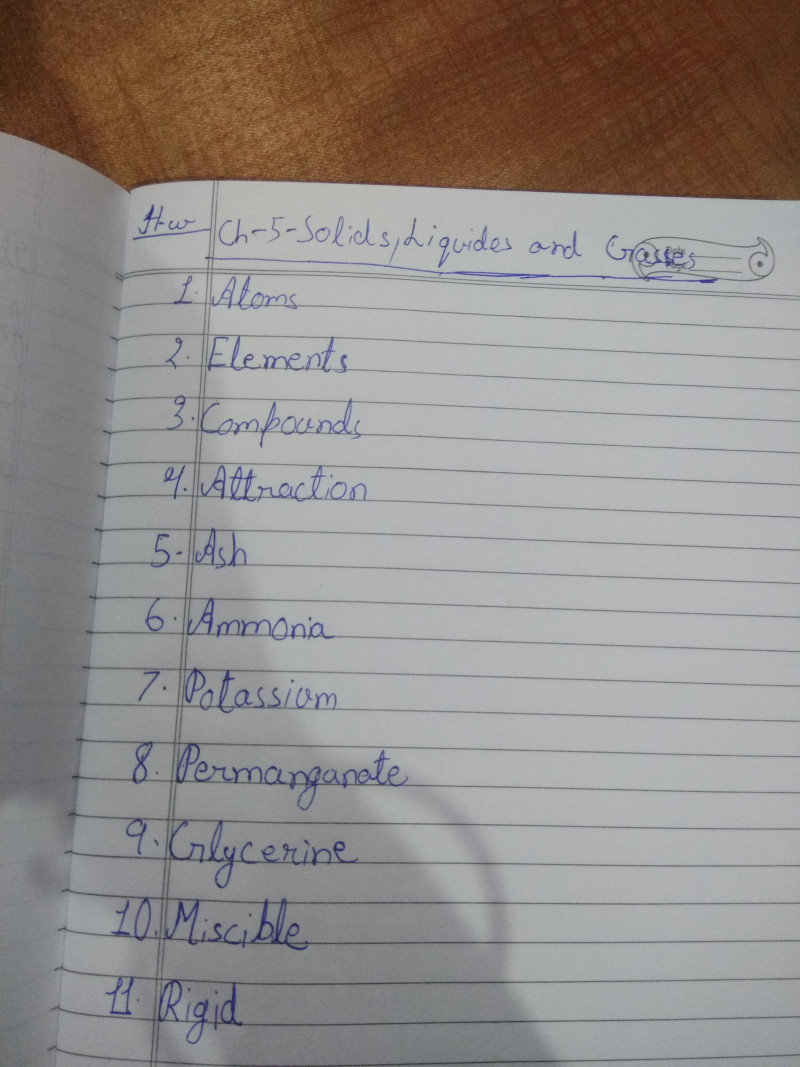 H.w Ch-5-Solids, Liquides and Gasses
1. Atoms
2. Elements
3. Compounds
4. Attraction
5. Ash
6. Ammonia
7. Potassium
8. Permanganate
9. Glycerine
10. Miscible
11. Rigid